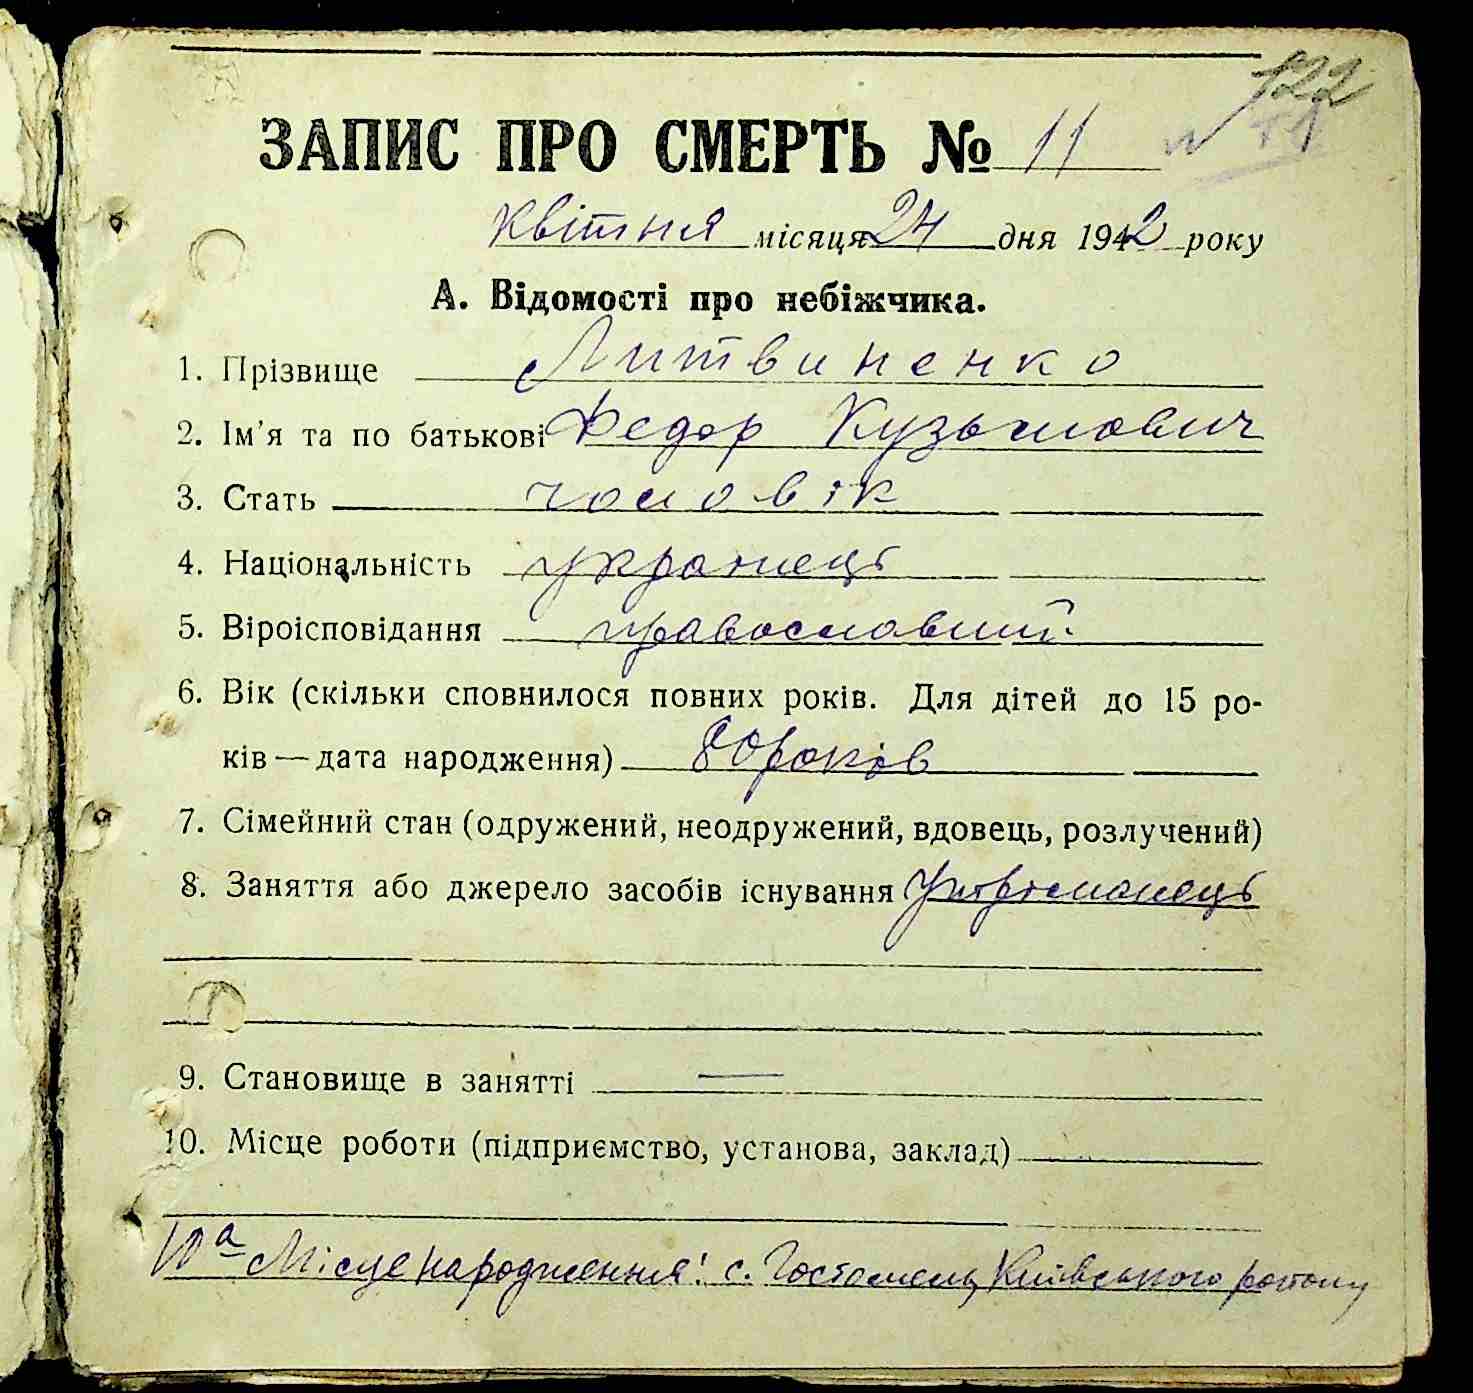 122
ЗАПИС ПРО СМЕРТЬ № 11
квітня місяця 24 дня 1942 року
А. Відомості про небіжчика.
1. Прізвище Литвиненко
2. Ім'я та по батькові Федор Кузьмович
3. Стать чоловік
4. Національність українець
5. Віроісповідання православний
6. Вік (скільки сповнилося повних років. Для дітей до 15 ро-
ків — дата народження) 80 років
7. Сімейний стан (одружений, неодружений, вдовець, розлучений)
8. Заняття або джерело засобів існування утриманець
9. Становище в занятті —
10. Місце роботи (підприємство, установа, заклад)
10а Місце народження: с. Гостомель, Київського району